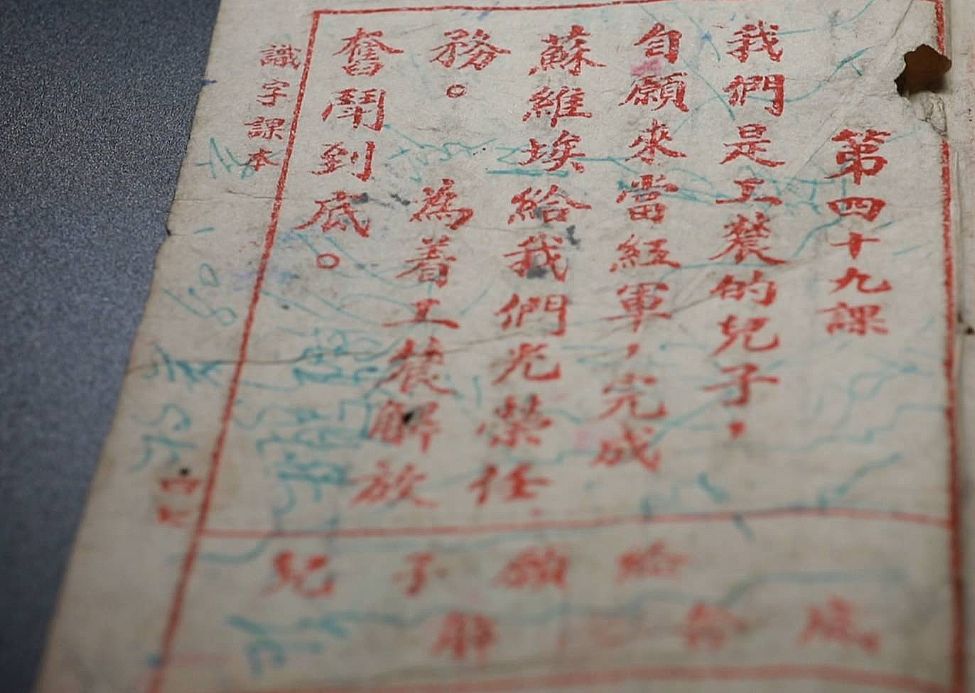 第四十九課
我們是工農的兒子，
自願來當紅軍，完成
蘇維埃給我們光榮任
務。為着工農解放
奮鬥到底。
識字課本
給願子兒
底奮解